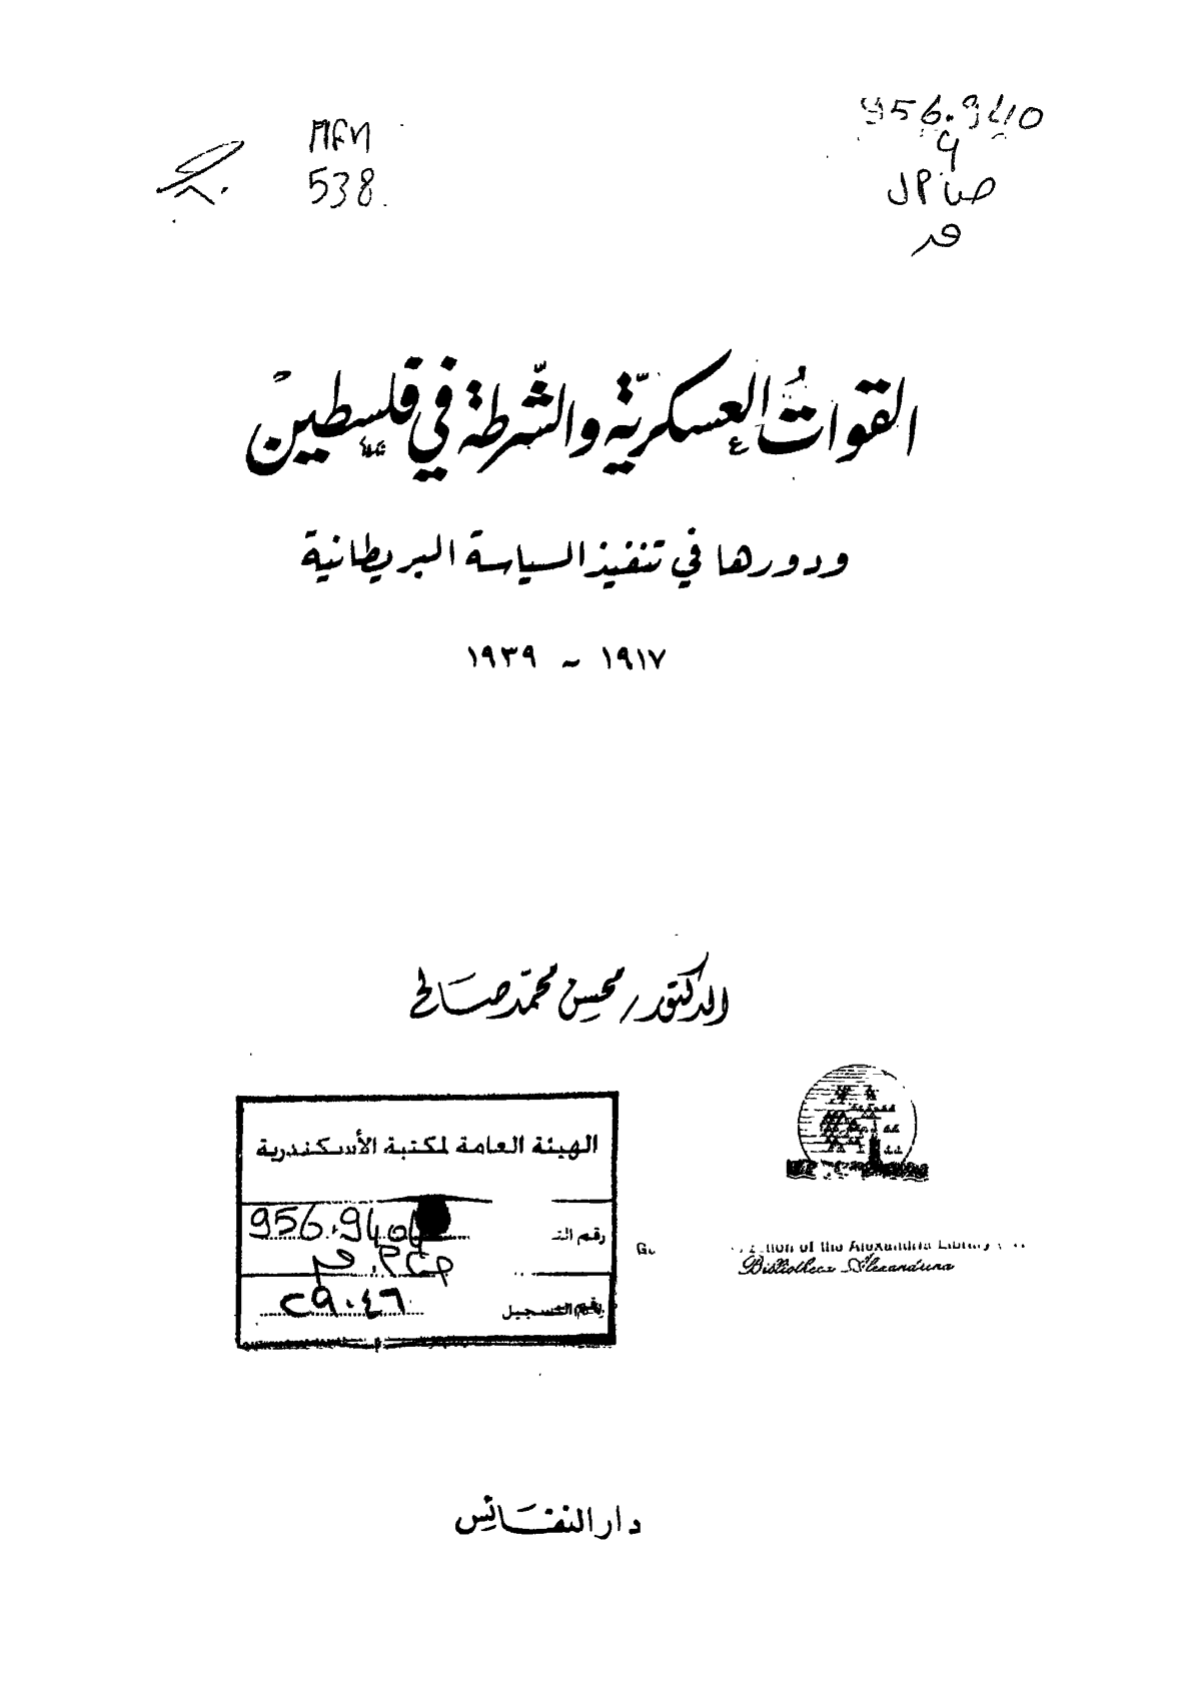 MFN
538.
956.940
9
القوات العسكريّة والشّرطة في فلسطين
ودورها في تنفيذ السياسة البريطانية
١٩١٧ - ١٩٣٩
الدكتور / محسن محمّد صَالح
الهيئة العامة لمكتبة الأسكندرية
رقم التـ
956.940
رقم التسجيل ٢٩٠٤٦
of the Alexandria Library
Bibliotheca Alexandrina
دار النفَائس